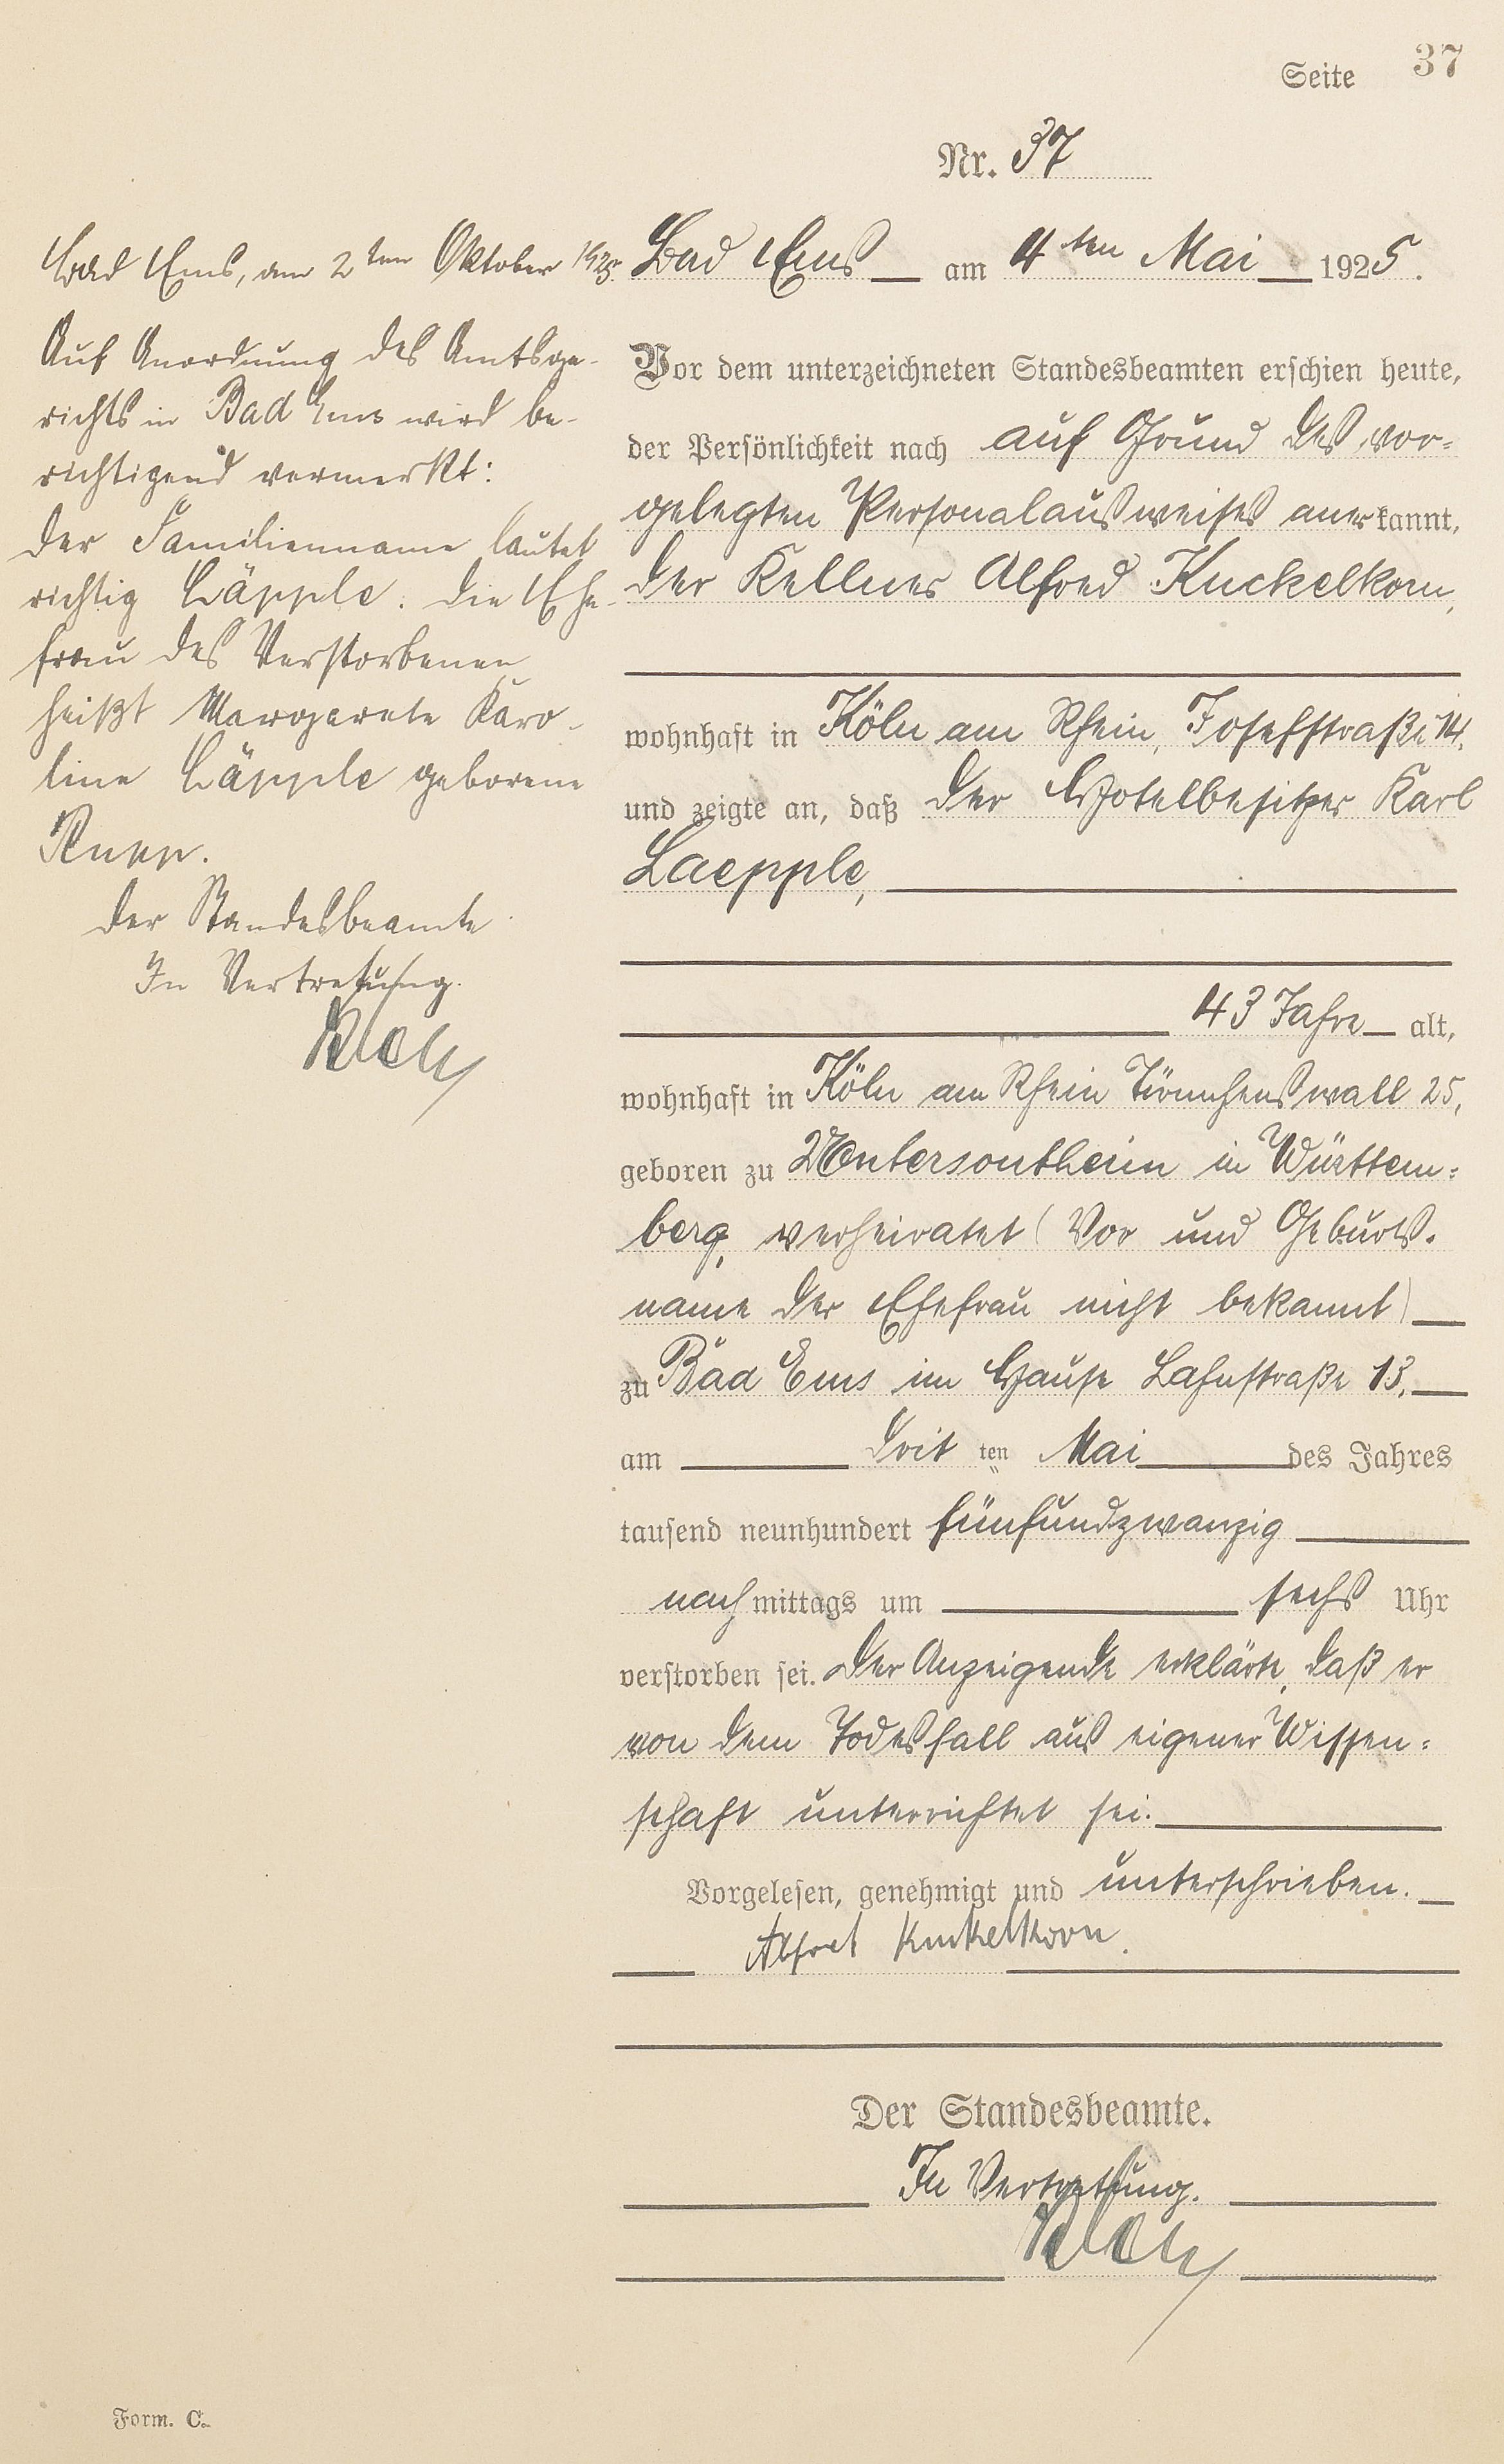 Seite 37
Nr. 37
Bad Ems am 4ten Mai 1925.
Vor dem unterzeichneten Standesbeamten erschien heute,
der Persönlichkeit nach auf Grund des vor-
gelegten Personalausweises anerkannt,
der Kellner Alfred Kuckelkorn,
wohnhaft in Köln am Rhein, Josefstraße 14.
und zeigte an, daß der Hotelbesitzer Karl
Laepple,
43 Jahre alt,
wohnhaft in Köln am Rhein Türmchenswall 25,
geboren zu Untersontheim in Württem-
berg, verheiratet (Vor und Geburts-
name der Ehefrau nicht bekannt)
zu Bad Ems im Hause Lahnstraße 13,
am drit ten Mai des Jahres
tausend neunhundert fünfundzwanzig
nachmittags um sechs Uhr
verstorben sei. Der Anzeigende erklärte, daß er
von dem Todesfall aus eigener Wissen-
schaft unterrichtet sei.
Vorgelesen, genehmigt und unterschrieben.
Alfred Kuckelkorn.
Der Standesbeamte.
In Vertretung.
Bad Ems, am 2ten Oktober 1925.
Auf Anordnung des Amtsge-
richts in Bad Ems wird be-
richtigend vermerkt:
der Familienname lautet
richtig Läpple. Die Ehe-
frau des Verstorbenen
heißt Margarete Karo-
line Läpple geborene
der Standesbeamte
In Vertretung.
Form. C.